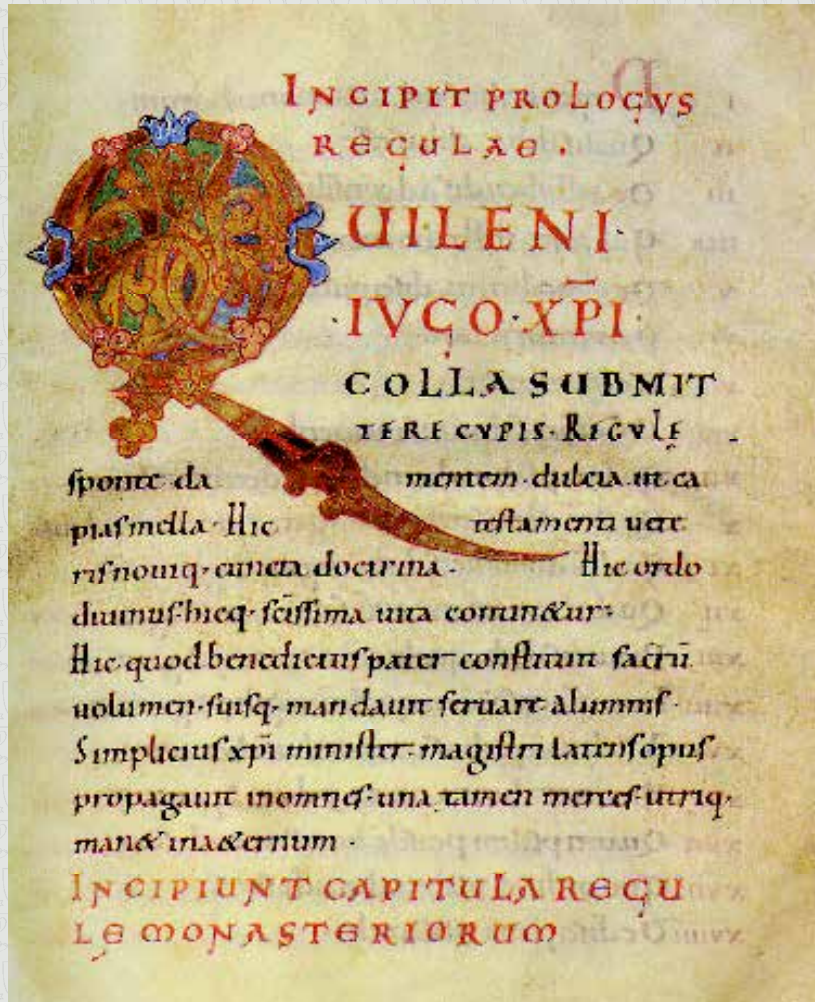 INCIPIT PROLOGVS
REGULAE .
QUILENI·
·IVGO·XP̅I
COLLA SUBMIT
TERE CVPIS·REGVLE
sponte da mentem·dulcia ut ca
pias mella· Hic testamenti uete
ris nouiq· cuncta doctrina· Hic ordo
diuinus·hicq· sc̅issima uita contin&ur·
Hic quod benedictus pater constituit sacru̅
uolumen·suisq· mandauit seruare alumnis·
Simplicius xp̅i minister·magistri latens opus·
propagauit in omnes·una tamen merces·utriq·
man& in a&ernum·
INCIPIUNT CAPITULA REGU
LE MONASTERIORUM